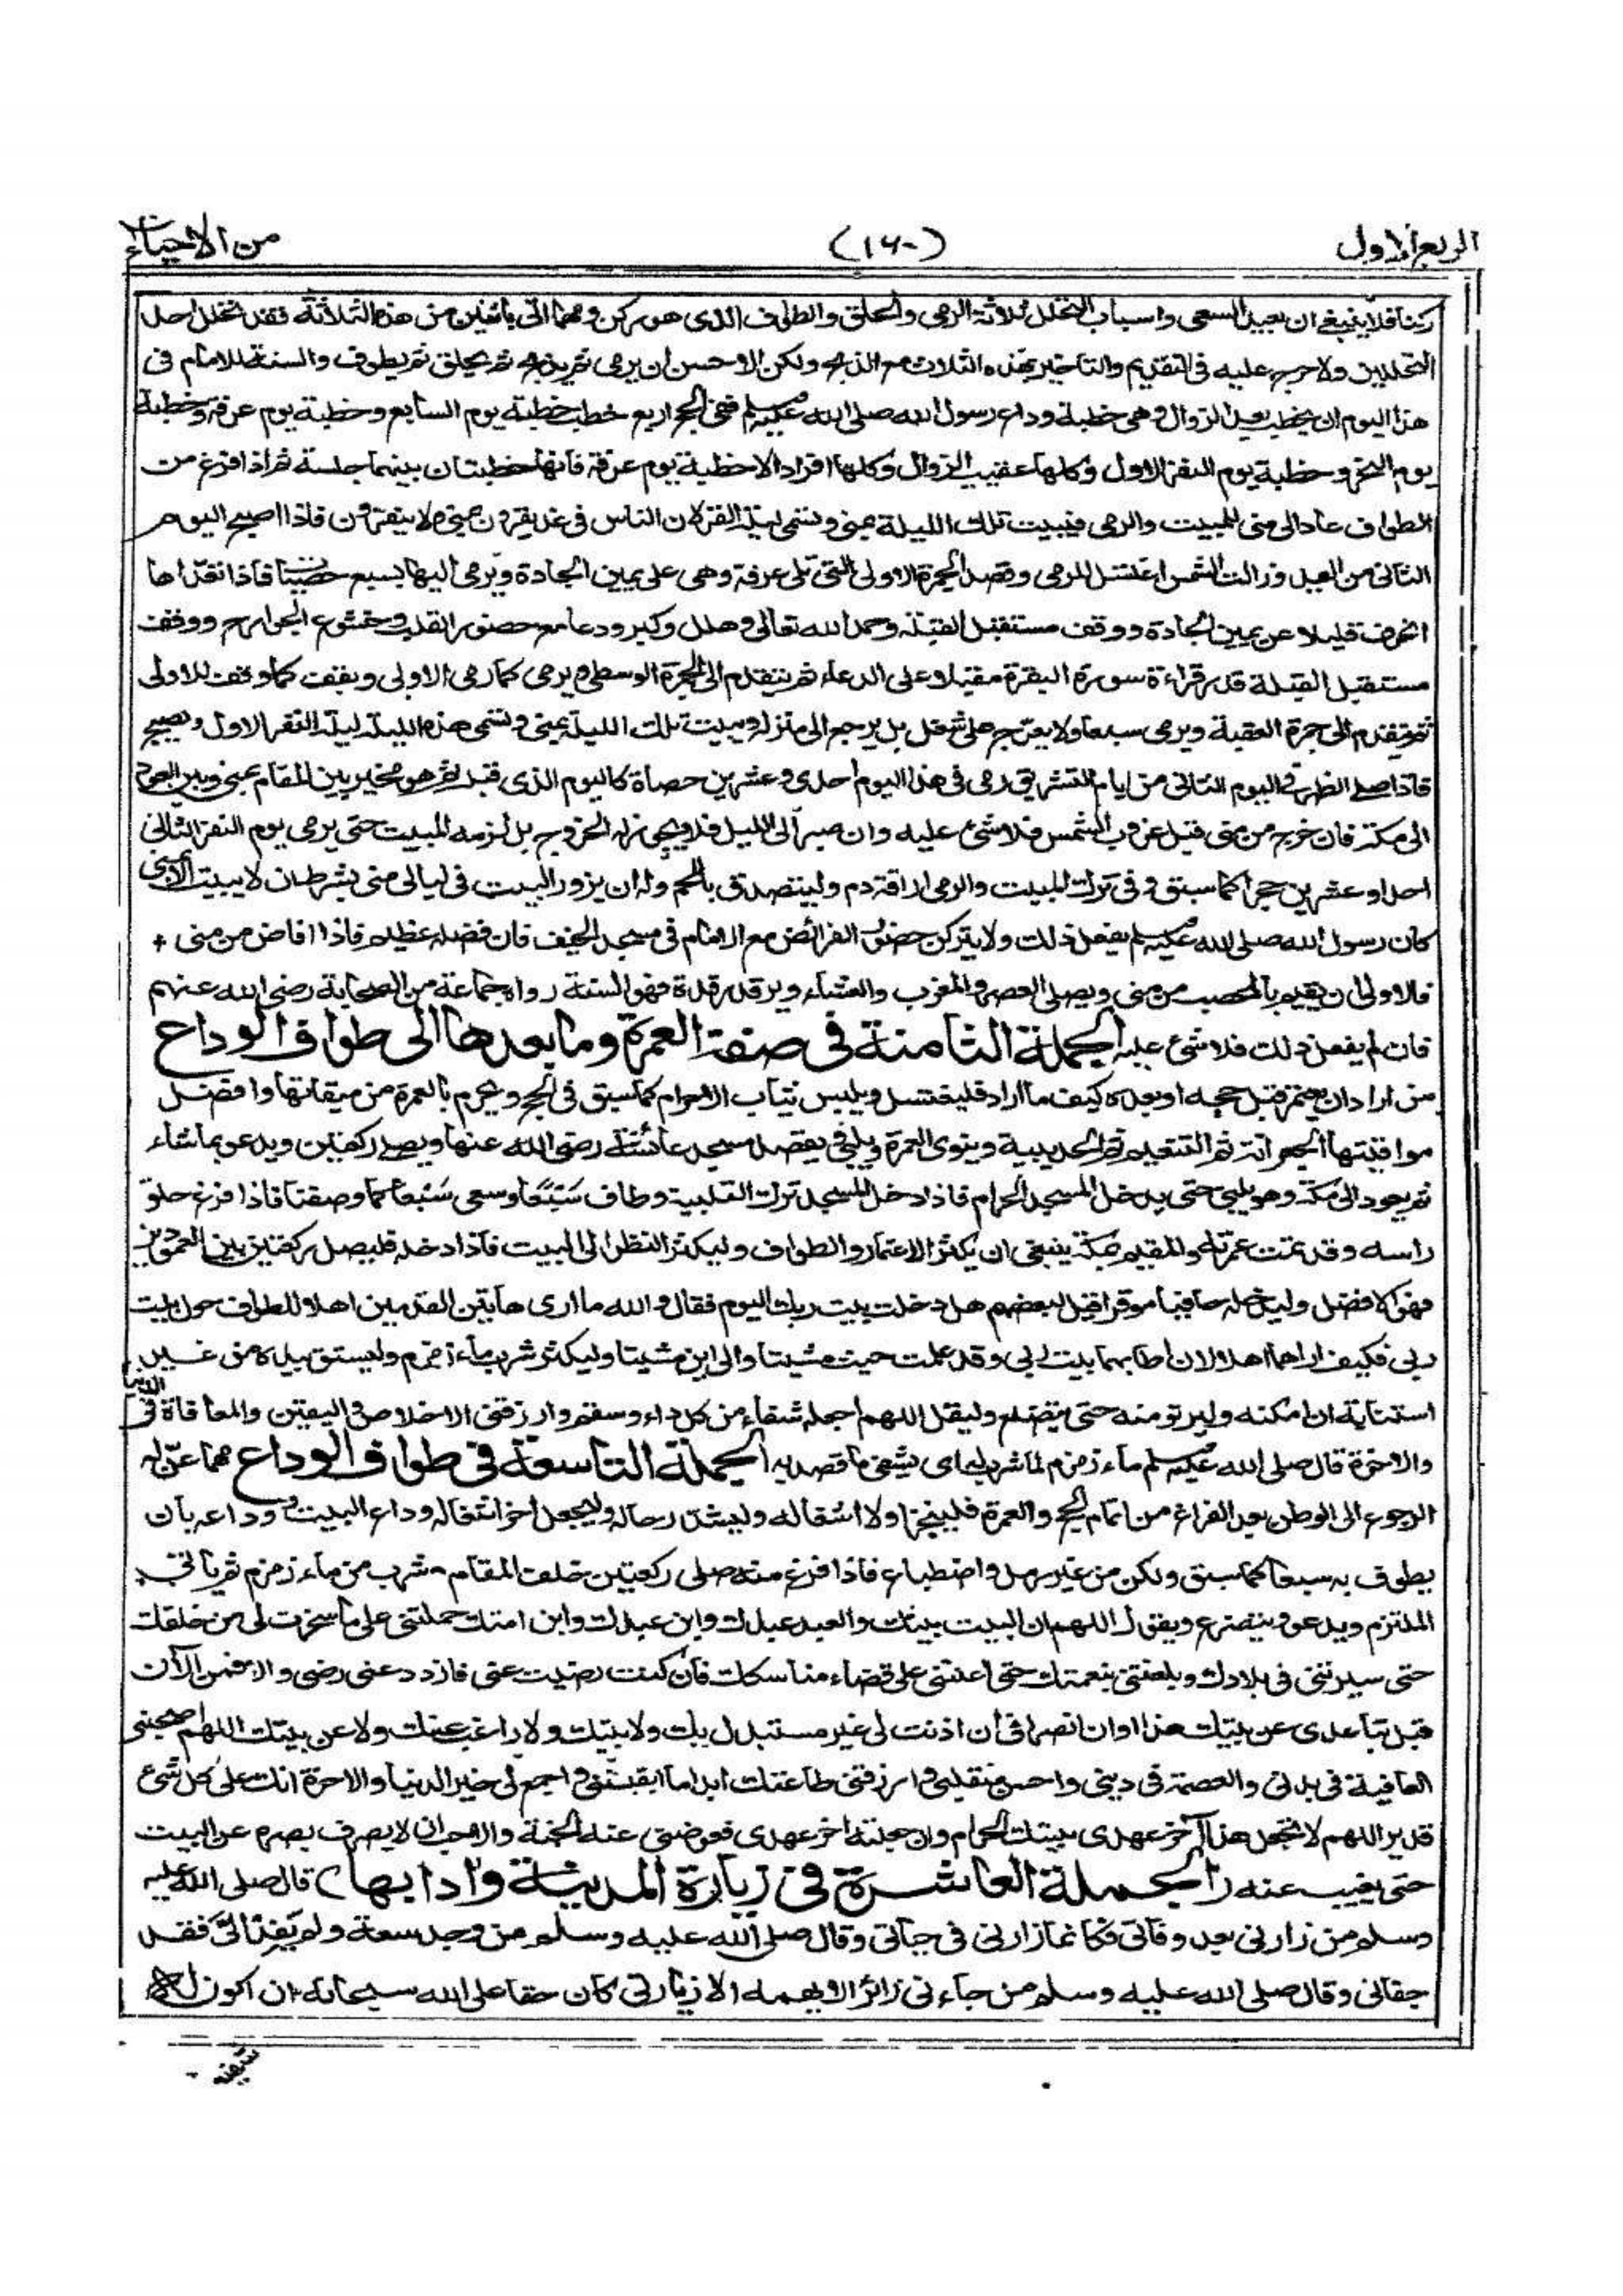 الربع الاول (١٦٠) من الاحياء
ركنا فلا ينبغي ان يعيد السعي واسباب التحلل ثلاثة الرمي والحلق والطواف الذى هو ركن ومهما اتى باثنين من هذه الثلاثة فقد تحلل احد
التحللين ولا حرج عليه فى التقديم والتاخير بهذه الثلاث مع الذبح ولكن الاحسن ان يرمى ثم يذبح ثم يحلق ثم يطوف والسنة للامام فى
هذا اليوم ان يخطب بعد الزوال وهى خطبة وداع رسول الله صلى الله عليه وسلم ففى الحج اربع خطب خطبة يوم السابع وخطبة يوم عرفة وخطبة
يوم النحر وخطبة يوم النفر الاول وكلها عقيب الزوال وكلها افراد الا خطبة يوم عرفة فانها خطبتان بينهما جلسة ثم اذا فرغ من
الطواف عاد الى منى للمبيت والرمى فيبيت تلك الليلة بمنى وتسمى ليلة القر لان الناس فى غد يقرون بمنى ولا ينفرون فاذا اصبح اليوم
الثانى من العيد وزالت الشمس اغتسل للرمى وقصد الجمرة الاولى التى تلى عرفة وهى على يمين الجادة ويرمى اليها بسبع حصيات فاذا تعداها
انحرف قليلا عن يمين الجادة ووقف مستقبل القبلة وحمد الله تعالى وهلل وكبر ودعا مع حضور القلب وخشوع الجوارح ووقف
مستقبل القبلة قدر قراءة سورة البقرة مقبلا على الدعاء ثم يتقدم الى الجمرة الوسطى ويرمى كما رمى الاولى ويقف كما وقف للاولى
ثم يتقدم الى جمرة العقبة ويرمى سبعا ولا يعرج على شغل بل يرجع الى منزله ويبيت تلك الليلة بمنى وتسمى هذه الليلة ليلة النفر الاول ويصبح
فاذا صلى الظهر فى اليوم الثانى من ايام التشريق رمى فى هذا اليوم احدى وعشرين حصاة كاليوم الذى قبله ثم هو مخير بين المقام بمنى وبين العود
الى مكة فان خرج من منى قبل غروب الشمس فلا شئ عليه وان صبر الى الليل فلا يجوز له الخروج بل لزمه المبيت حتى يرمى يوم النفر الثانى
احدا وعشرين حجرا كما سبق وفى ترك المبيت والرمى اراقة دم وليتصدق باللحم وله ان يزور البيت فى ليالى منى بشرط ان لا يبيت الا بمنى
كان رسول الله صلى الله عليه وسلم يفعل ذلك ولا يتركن حضور الفرائض مع الامام فى مسجد الخيف فان فضله عظيم فاذا افاض من منى
فالاولى ان يقيم بالمحصب من منى ويصلى العصر والمغرب والعشاء ويرقد رقدة فهو السنة رواه جماعة من الصحابة رضى الله عنهم
فان لم يفعل ذلك فلا شئ عليه الجملة الثامنة فى صفة العمرة وما بعدها الى طواف الوداع
من اراد ان يعتمر قبل حجه او بعده كيف ما اراد فليغتسل ويلبس ثياب الاحرام كما سبق فى الحج ويحرم بالعمرة من ميقاتها وافضل
مواقيتها الجعرانة ثم التنعيم ثم الحديبية وينوى العمرة ويلبى يقصد مسجد عائشة رضى الله عنها ويصلى ركعتين ويدعو بما شاء
ثم يعود الى مكة وهو يلبى حتى يدخل المسجد الحرام فاذا دخل المسجد ترك التلبية وطاف سَبْعًا وسعى سَبْعا كما وصفنا فاذا فرغ حلق
راسه وقد تمت عمرته والمقيم بمكة ينبغى ان يكثر الاعتمار والطواف وليكثر النظر الى البيت فاذا دخله فليصل ركعتين بين العمودين
فهو الافضل وليدخله حافيا موقرا قيل لبعضهم هل دخلت بيت ربك اليوم فقال والله ما ارى هاتين القدمين اهلا للطواف حول بيت
ربى فكيف اراهما اهلا لان اطا بهما بيت ربى وقد علمت حيث مشيتا والى اين مشيتا وليكثر شرب ماء زمزم وليستق بيده من غير
استنابة ان امكنه وليرتو منه حتى يتضلع وليقل اللهم اجعله شفاء من كل داء وسقم وارزقنى الاخلاص واليقين والمعافاة فى الدنيا
والاخرة قال صلى الله عليه وسلم ماء زمزم لما شرب له اى يشفى ما قصد به الجملة التاسعة فى طواف الوداع مهما عنّ له
الرجوع الى الوطن بعد الفراغ من اتمام الحج والعمرة فلينجز اولا اشغاله وليشد رحاله وليجعل اخر اشغاله وداع البيت ووداعه بان
يطوف به سبعا كما سبق ولكن من غير رمل واضطباع فاذا فرغ منه صلى ركعتين خلف المقام وشرب من ماء زمزم ثم ياتى
الملتزم ويدعو ويتضرع ويقول اللهم ان البيت بيتك والعبد عبدك وابن عبدك وابن امتك حملتنى على ما سخرت لى من خلقك
حتى سيرتنى فى بلادك وبلغتنى بنعمتك حتى اعنتنى على قضاء مناسكك فان كنت رضيت عنى فازدد عنى رضى والا فمن الآن
قبل تباعدى عن بيتك هذا اوان انصرافى ان اذنت لى غير مستبدل بك ولا ببيتك ولا راغب عنك ولا عن بيتك اللهم اصحبنى
العافية فى بدنى والعصمة فى دينى واحسن منقلبى وارزقنى طاعتك ابدا ما ابقيتنى واجمع لى خير الدنيا والاخرة انك على كل شئ
قدير اللهم لا تجعل هذا آخر عهدى ببيتك الحرام وان جعلته اخر عهدى فعوضنى عنه الجنة والاحب ان لا يصرف بصره عن البيت
حتى يغيب عنه (الجملة العاشرة فى زيارة المدينة وادابها) قال صلى الله عليه
وسلم من زارنى بعد وفاتى فكانما زارنى فى حياتى وقال صلى الله عليه وسلم من وجد سعة ولم يفد الىّ فقد
جفانى وقال صلى الله عليه وسلم من جاءنى زائرا لا يهمه الا زيارتى كان حقا على الله سبحانه ان اكون له
شفيعا